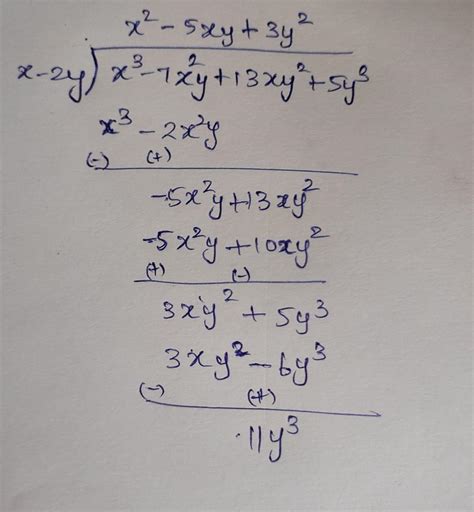 x² - 5xy + 3y²
x-2y) x³ - 7x²y + 13xy² + 5y³
x³ - 2x²y
(-) (+)
-5x²y + 13xy²
-5x²y + 10xy²
(+) (-)
3xy² + 5y³
3xy² - 6y³
(-) (+)
11y³